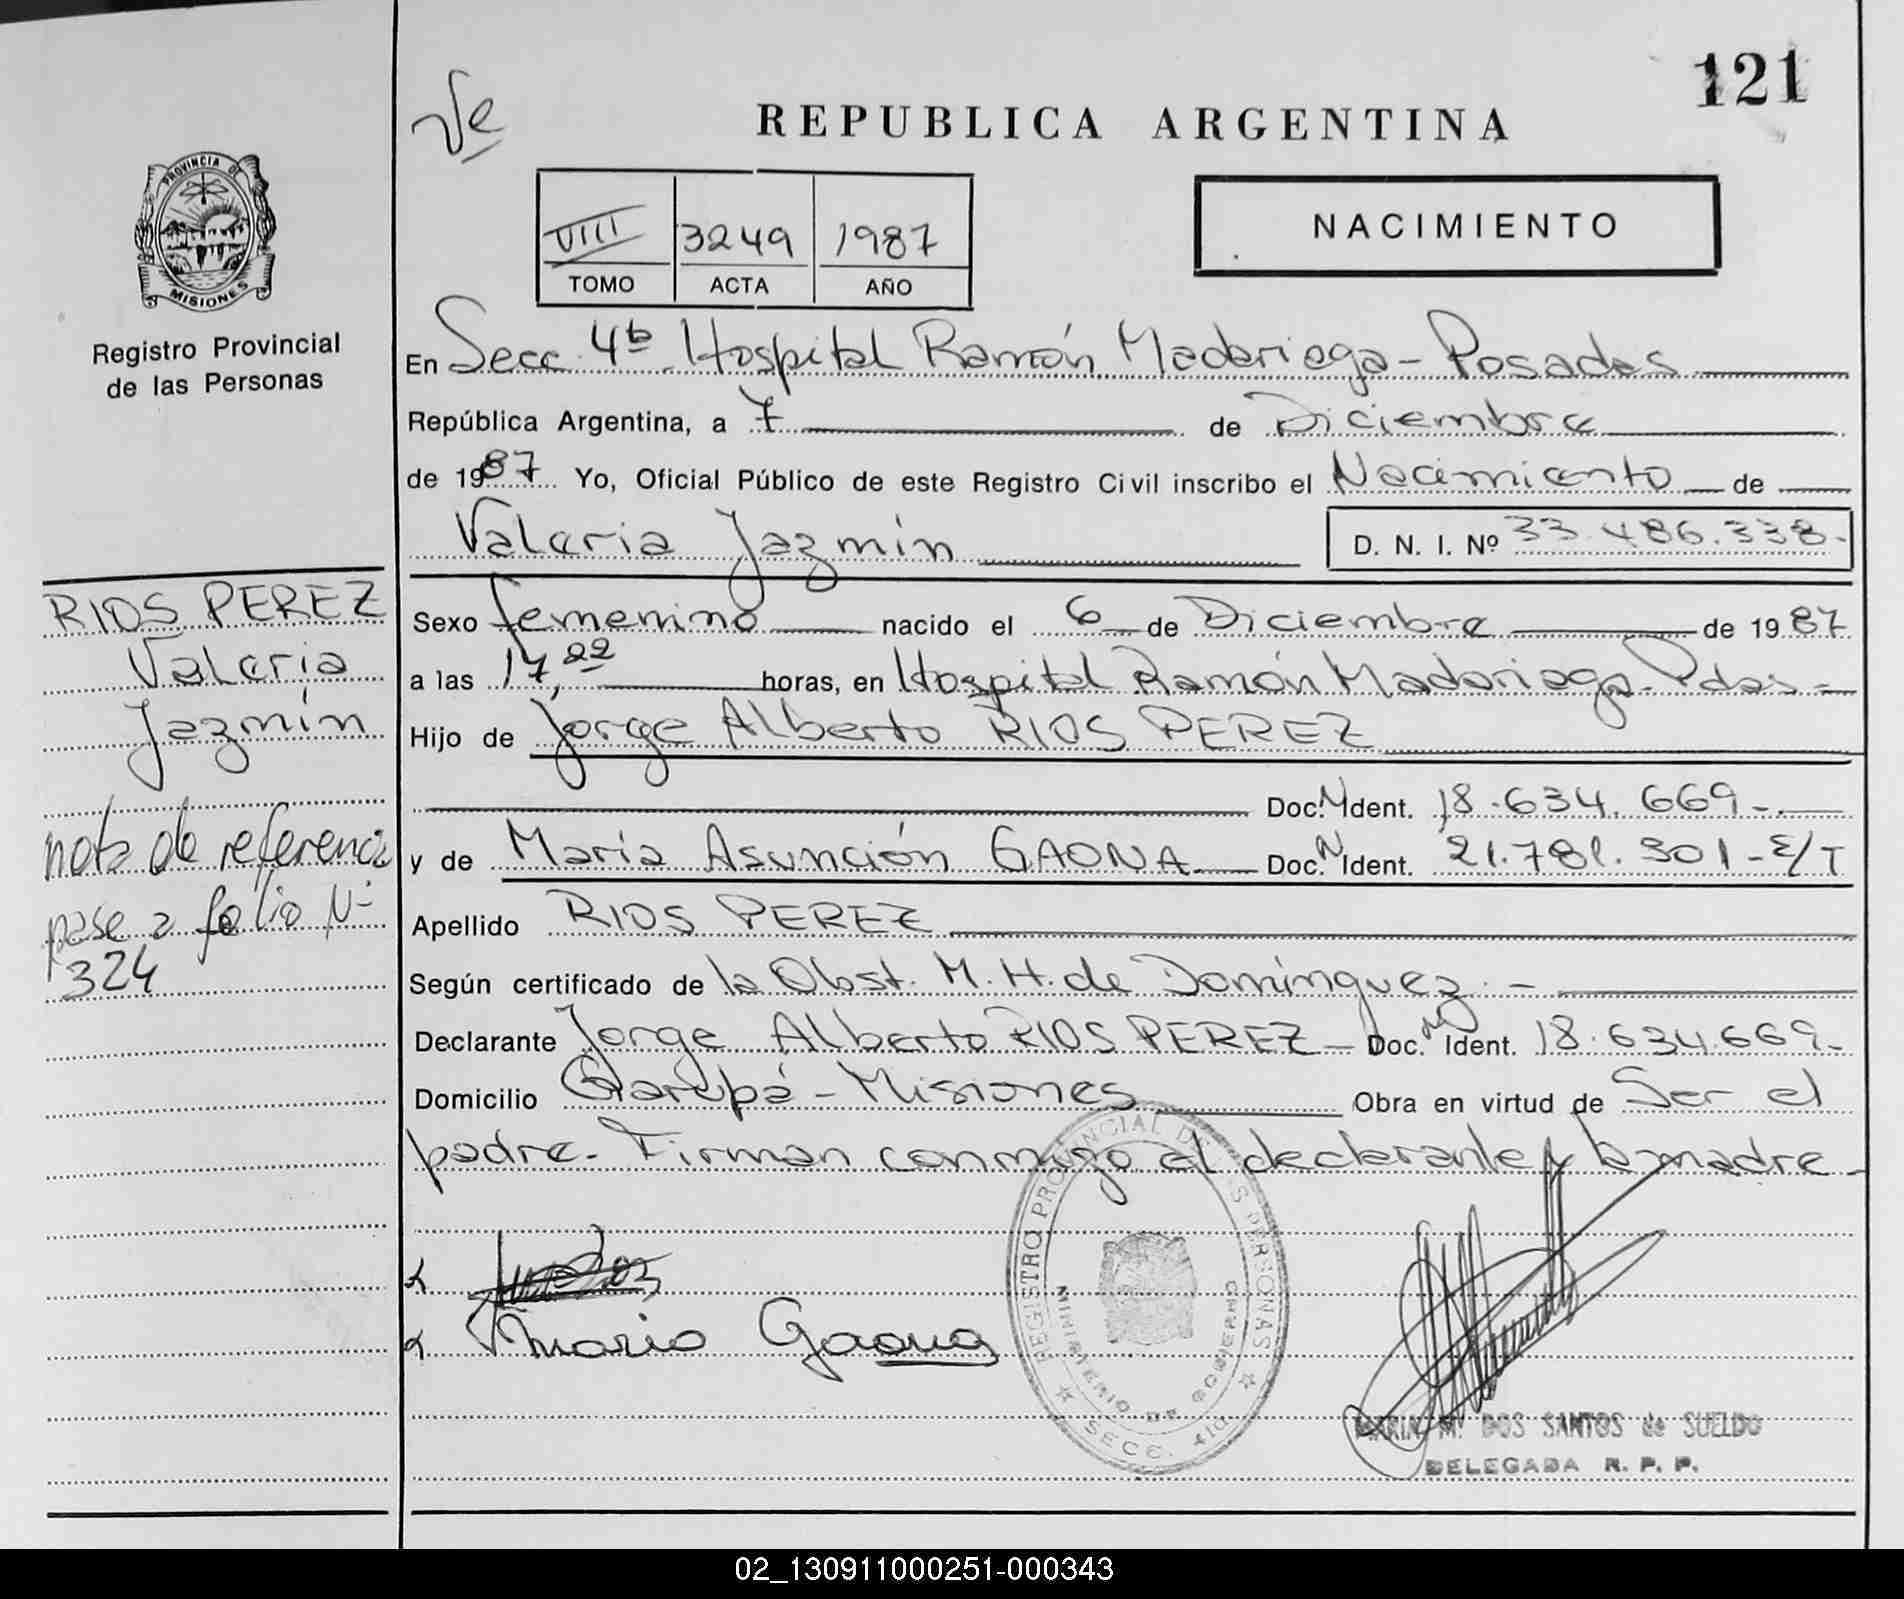 121
Ve
REPUBLICA ARGENTINA
PROVINCIA DE
MISIONES
Registro Provincial
de las Personas
VIII 3249 1987
TOMO ACTA AÑO
NACIMIENTO
En Secc. 4ta Hospital Ramón Madariaga - Posadas
República Argentina, a 7 de Diciembre
de 1987 Yo, Oficial Público de este Registro Civil inscribo el Nacimiento de
Valeria Jazmín D. N. I. Nº 33.486.338.-
RIOS PEREZ
Valeria
Jazmín
nota de referencia
pase a folio Nº
324
Sexo femenino nacido el 6 de Diciembre de 1987
a las 17,22 horas, en Hospital Ramón Madariaga - Pdas -
Hijo de Jorge Alberto RIOS PEREZ
Doc. N Ident. 18.634.669-
y de María Asunción GAONA Doc. N Ident. 21.781.301 - E/T
Apellido RIOS PEREZ
Según certificado de la Obst. M. H. de Domínguez. -
Declarante Jorge Alberto RIOS PEREZ - Doc. N Ident. 18.634.669-
Domicilio Garupá - Misiones Obra en virtud de Ser el
padre. Firman conmigo el declarante y la madre -
Maria Gaona
REGISTRO PROVINCIAL DE LAS PERSONAS
MINISTERIO DE GOBIERNO
SECC. 4ta
MARIA Mª. DOS SANTOS de SUELDO
DELEGADA R. P. P.
02_130911000251-000343